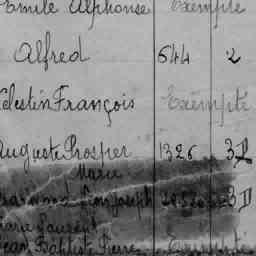 Emile Alphonse Exempté
Alfred 644 2
Célestin François Exempté
Auguste Prosper 1326 3D
Marie
Joseph 3D
Marie Laurent
Jean Baptiste Pierre Exempté